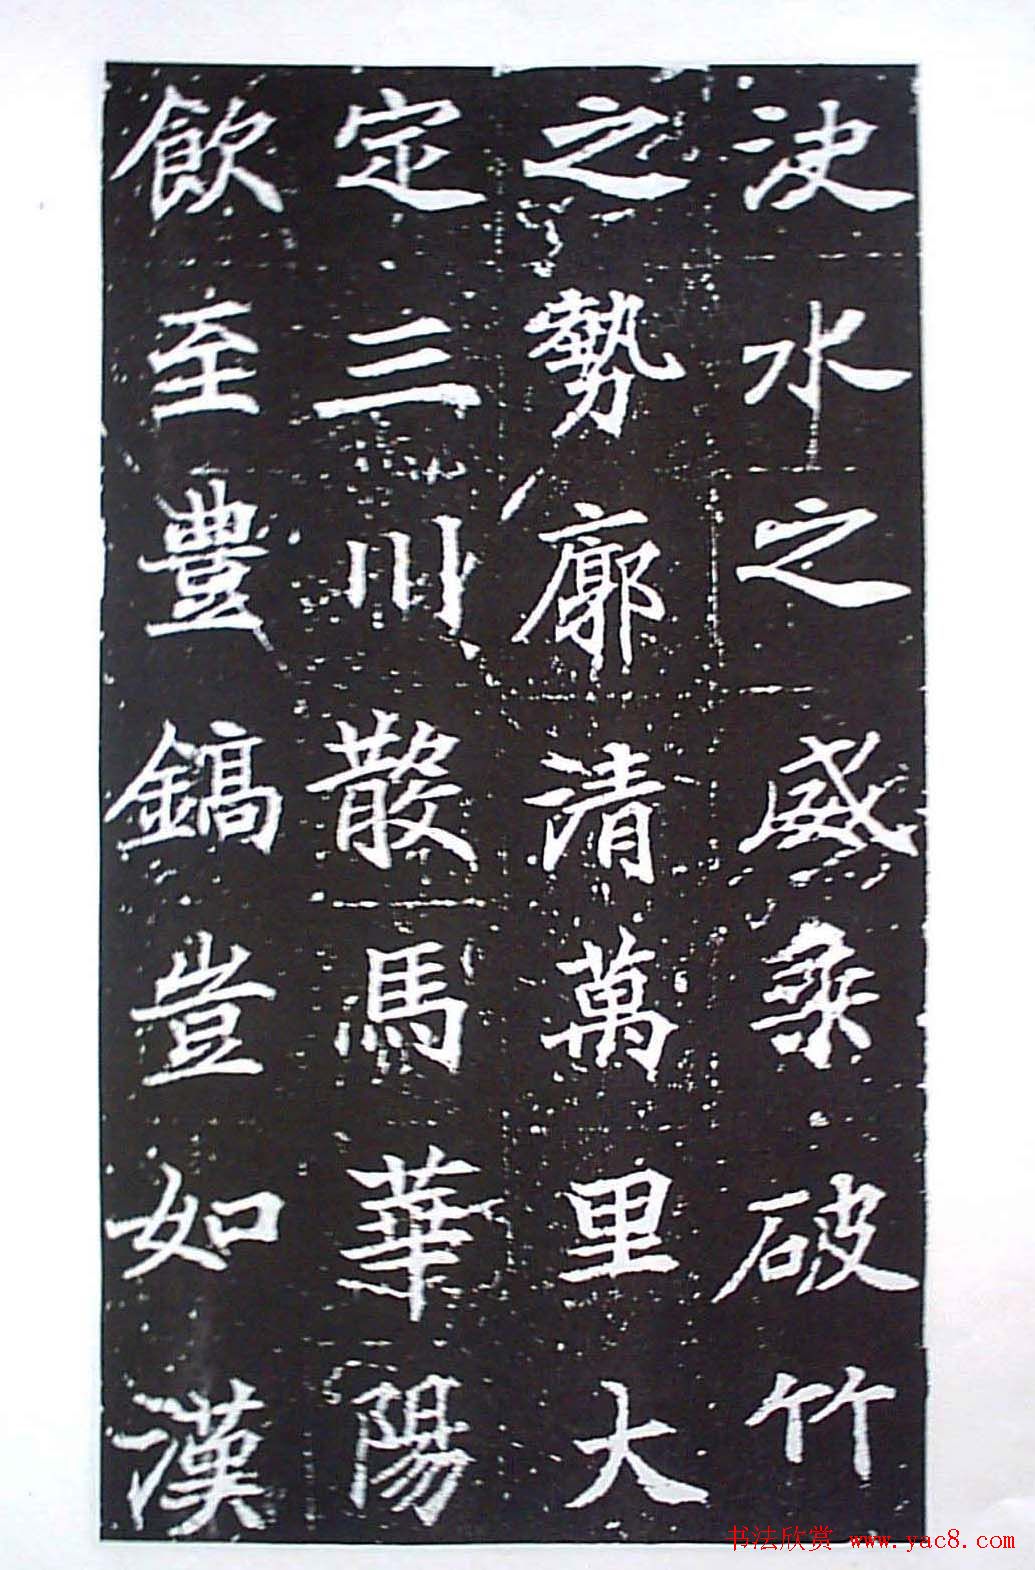 決水之威乘破竹
之勢廓清萬里大
定三川散馬華陽
飲至豐鎬豈如漢
书法欣赏 www.yac8.com